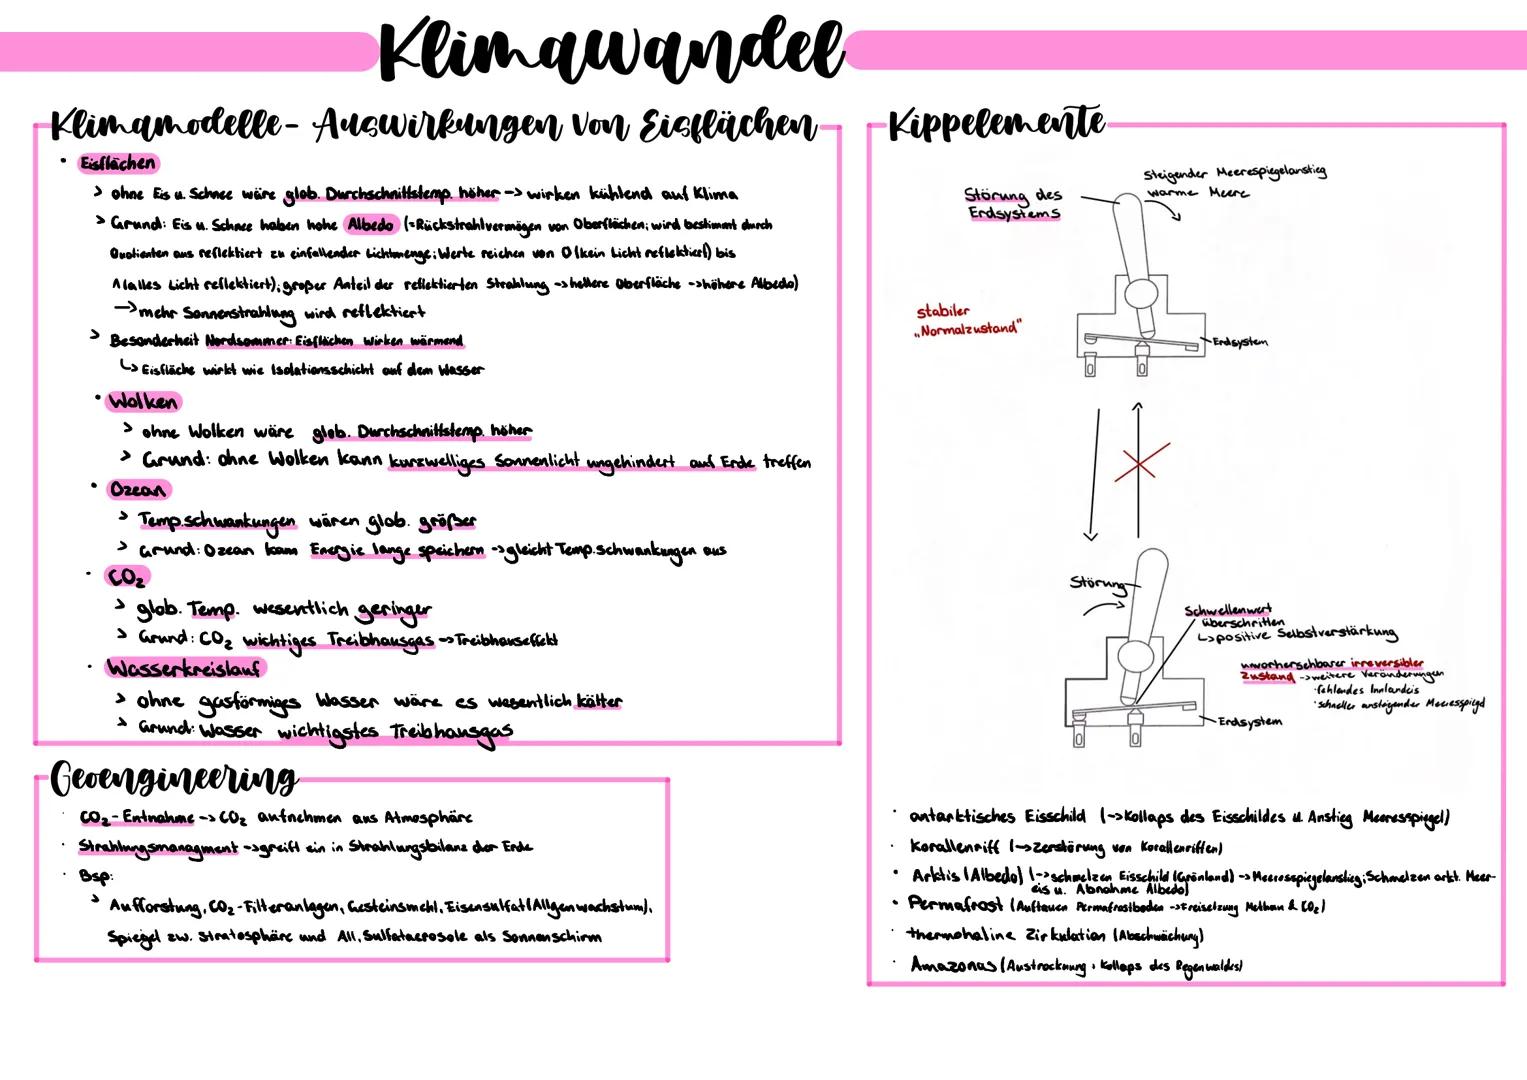 Klimawandel
Klimamodelle - Auswirkungen von Eisflächen
• Eisflächen
> ohne Eis u. Schnee wäre glob. Durchschnittstemp. höher -> wirken kühlend auf Klima
> Grund: Eis u. Schnee haben hohe Albedo (=Rückstrahlvermögen von Oberflächen; wird bestimmt durch
Quotienten aus reflektiert zu einfallender Lichtmenge; Werte reichen von 0 (kein Licht reflektiert) bis
1 (alles Licht reflektiert); großer Anteil der reflektierten Strahlung -> hellere Oberfläche -> höhere Albedo)
-> mehr Sonnenstrahlung wird reflektiert
> Besonderheit Nordsommer: Eisflächen wirken wärmend
↳ Eisfläche wirkt wie Isolationsschicht auf dem Wasser
• Wolken
> ohne Wolken wäre glob. Durchschnittstemp. höher
> Grund: ohne Wolken kann kurzwelliges Sonnenlicht ungehindert auf Erde treffen
• Ozean
> Temp.schwankungen wären glob. größer
> Grund: Ozean kann Energie lange speichern -> gleicht Temp.schwankungen aus
• CO₂
> glob. Temp. wesentlich geringer
> Grund: CO₂ wichtiges Treibhausgas -> Treibhauseffekt
• Wasserkreislauf
> ohne gasförmiges Wasser wäre es wesentlich kälter
> Grund: Wasser wichtigstes Treibhausgas
Geoengineering
• CO₂-Entnahme -> CO₂ aufnehmen aus Atmosphäre
• Strahlungsmanagment -> greift ein in Strahlungsbilanz der Erde
• Bsp:
> Aufforstung, CO₂-Filteranlagen, Gesteinsmehl, Eisensulfat (Algenwachstum),
Spiegel zw. Stratosphäre und All, Sulfataerosole als Sonnenschirm
Kippelemente
steigender Meeresspiegelanstieg
warme Meere
Störung des
Erdsystems
stabiler
„Normalzustand"
Erdsystem
Störung
Schwellenwert
überschritten
↳ positive Selbstverstärkung
unvorhersehbarer irreversibler
Zustand -> weitere Veränderungen
• fehlendes Inlandeis
• schneller ansteigender Meeresspiegel
Erdsystem
• antarktisches Eisschild (-> Kollaps des Eisschildes u. Anstieg Meeresspiegel)
• Korallenriff (-> Zerstörung von Korallenriffen)
• Arktis (Albedo) (-> schmelzen Eisschild (Grönland) -> Meeresspiegelanstieg; Schmelzen arkt. Meer-
eis u. Abnahme Albedo)
• Permafrost (Auftauen Permafrostboden -> Freisetzung Methan & CO₂)
• thermohaline Zirkulation (Abschwächung)
• Amazonas (Austrocknung + Kollaps des Regenwaldes)